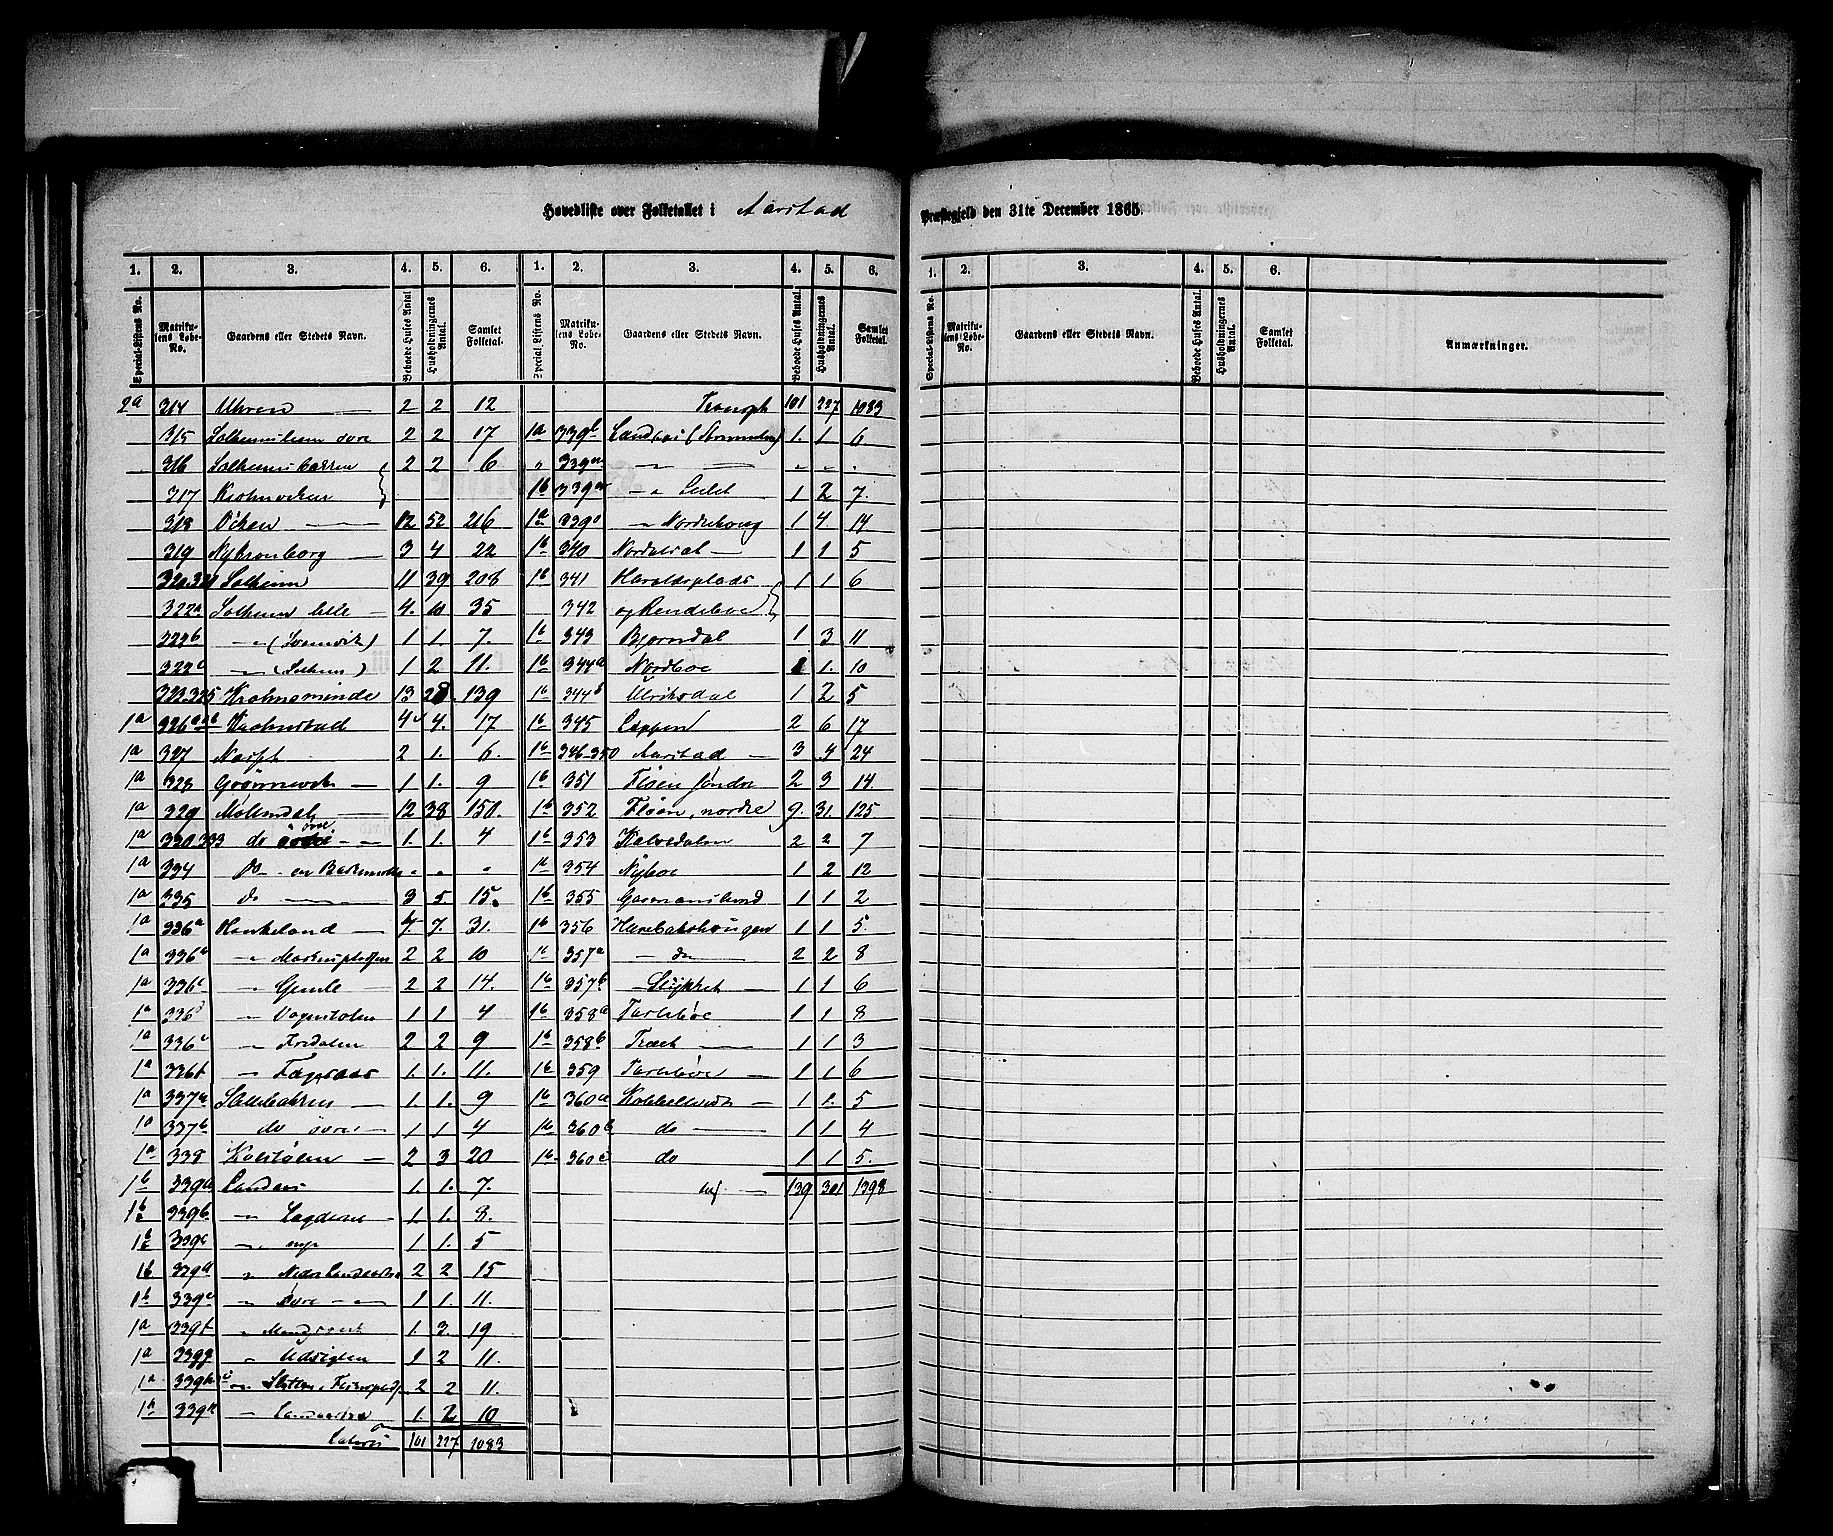 Hovedliste over Folketallet i Aarstad Præstegjeld den 31te December 1865.
1. 2. 3. 4. 5. 6. 1. 2. 3. 4. 5. 6.
Special-Listens No. Matrikulens Løbe-No. Gaardens eller Stedets Navn. Beboede Huses Antal Husholdningernes Antal. Samlet Folketal. Special-Listens No. Matrikulens Løbe-No. Gaardens eller Stedets Navn. Beboede Huses Antal. Husholdningernes Antal. Samlet Folketal.
2a 314 Uhren 2 2 12
315 øvre 2 2 17
316 2 2 6
317
318 Viken 12 52 216
319 Ny Kronborg 3 4 22
320.321 Solheim 11 39 208
322a Solheim lille 4. 10 35
322b " 1 1. 7.
322c " (Solheim) 1 2 11.
323.325 Krohnsminde 13 28. 139
1a 326ab Krohnstad 4 4. 17
1a 327 2 1. 6.
1a 328 1 1. 9
1a 329 Møllendal 12 38 150.
1a 330.333 do øvre 1. 1. 4
1a 334 Do " " "
1a 335 do 3 5 15.
1a 336a Haukeland 4. 7. 31.
1a 336b " 2 2 10
1a 336c " Gimle 2 2 14.
1a 336d " 1 1 4
1a 336e " Fredalen 2 2 9
1a 336f " 1. 1. 11.
1a 337a 1. 1. 9
1a 337b do øvre 1 1 4
1a 338 Kalstølen 2 3 20
1b 339a Landaas 1. 1. 7.
1b 339b " 1 1. 8.
1b 339c " 1 1. 5
1b 339d " Neder 2 2 15
1b 339e " Øvre " 1 1. 11.
1a 339f " 1. 3. 19
1a 339g " Udsigten 1 2 11.
1a 339h " 2 2 11.
1b 339k " 1. 2 10
Lateris 101 227 1083
Transpt 101 227 1083
1a 339l Landaas 1. 1 6
" 339m " " " "
1b 339n " " Leitet 1 2 7.
1a 339o " 1 4. 14
1b 340 1 1 5
1b 341 Haraldsplads 1 1 6
342 og Rendeboe
1b 343 Bjørndal 1 3 11
1b 344a Nordboe 1 1. 10
1b 344b Ulriksdal 1 2 5
1b 345 Leppen 2 6 17
1b 346-350 Aarstad 3 4 24
1b 351 Fløen søndre 2 3 14.
1b 352 Fløen, nordre 9. 31. 125
1b 353 Kalvedalen 2 2 7
1b 354 Nyboe 1 2 12
1b 355 1 1 2
1b 356 1 1 5
1b 357a do 2 2 8
1b 357b Stykket 1 1 6
1b 358a Tarleboe 1 1 8
1b 358b Træet 1 1 3
1b 359 Tarleboe 1 1 6
1b 360a Kobbeltvedt 1 1. 5
1b 360b do 1 1 4
1b 360c do 1 1 5.
139 301 1398
1. 2. 3. 4. 5. 6.
Special-Listens No. Matrikulens Løbe-No. Gaardens eller Stedets Navn. Beboede Huses Antal. Husholdningernes Antal. Samlet Folketal. Anmærkninger.